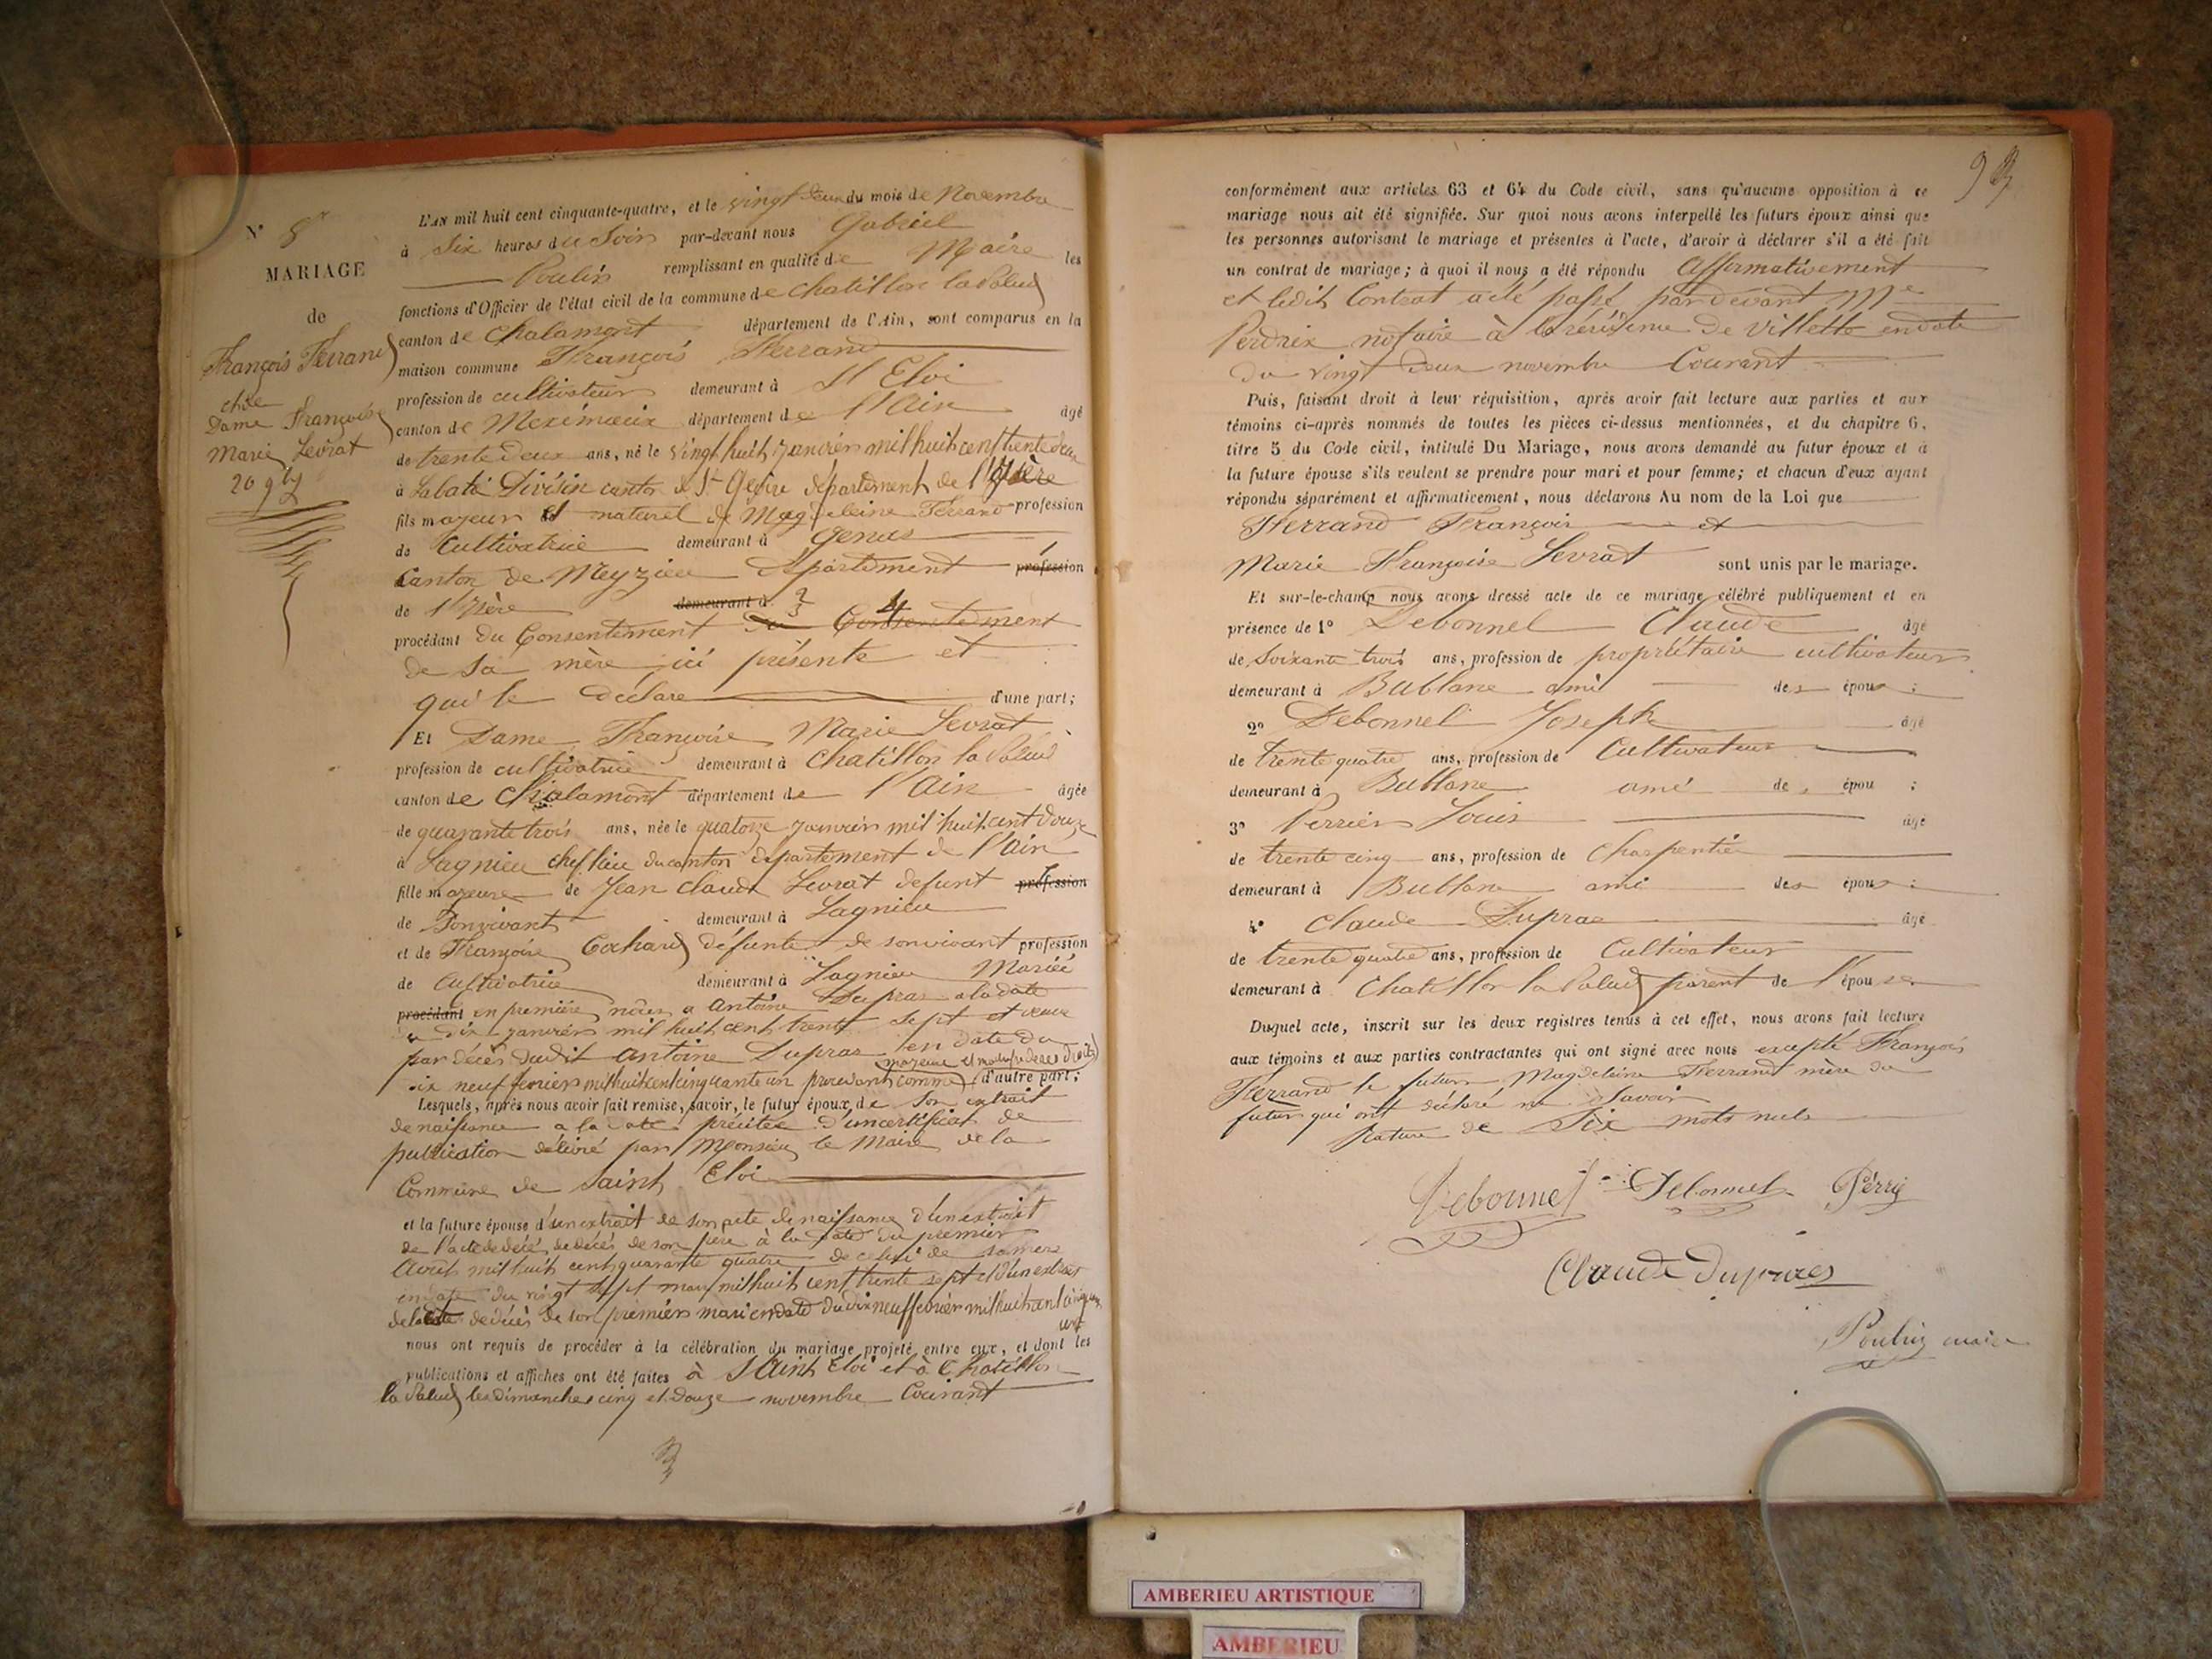 N° 8
MARIAGE
de
François Ferrand
et de
Dame Françoise
Marie Levrat
L'AN mil huit cent cinquante-quatre, et le vingt deux du mois de Novembre
à Six heures du Soir par-devant nous Gabriel
Poulin remplissant en qualité de Maire les
fonctions d'Officier de l'état civil de la commune de Chatillon la Palud
canton de Chalamont département de l'Ain, sont comparus en la
maison commune François Ferrand
profession de cultivateur demeurant à St Eloi
canton de Meximieux département de l'Ain âgé
de trente deux ans, né le vingt huit janvier mil huit cent trente deux
à Labatie Divisin canton de St Geoire département de l'Isère
fils majeur et naturel de Magdeleine Ferrand profession
de Cultivatrice demeurant à Genas
Canton de Meyzieu Département profession
de l'Isère demeurant à
procédant du Consentement du Consentement
de sa mère ici présente et
qui le déclare d'une part;
Et Dame Françoise Marie Levrat
profession de cultivatrice demeurant à Chatillon la Palud
canton de Chalamont département de l'Ain âgée
de quarante trois ans, née le quatorze janvier mil huit cent douze
à Lagnieu chef lieu du canton département de l'Ain
fille majeure de Jean Claude Levrat defunt profession
de Sonvivant demeurant à Lagnieu
et de Françoise Cochard défunte de sonvivant profession
de Cultivatrice demeurant à Lagnieu Mariée
procédant en première noces a Antoine Dupras a la date
du dix janvier mil huit cent trente sept et veuve
par décès dudit Antoine Dupras en date du
majeure et maitresse de ses droits
dix neuf fevrier mil huit cent cinquante un procédant comme d'autre part;
Lesquels, après nous avoir fait remise, savoir, le futur époux de son extrait
de naissance a la date précitée d'un certificat de
publication délivré par Monsieur le Maire de la
Commune de Saint Eloi
et la future épouse d'un extrait de son acte de naissance d'un extrait
de l'acte de décès de décés de son père à la date du premier
Avril mil huit cent quarante quatre de celui de sa mere
en date du vingt sept mars mil huit cent trente sept et d'un extrait
de l'acte de décès de son premier mari en date du dix neuf fevrier mil huit cent cinquante
un
nous ont requis de procéder à la célébration du mariage projeté entre eux, et dont les
publications et affiches ont été faites à Saint Eloi et à Chatillon
la Palud les dimanches cinq et douze novembre Courant
9
conformément aux articles 63 et 64 du Code civil, sans qu'aucune opposition à ce
mariage nous ait été signifiée. Sur quoi nous avons interpellé les futurs époux ainsi que
les personnes autorisant le mariage et présentes à l'acte, d'avoir à déclarer s'il a été fait
un contrat de mariage; à quoi il nous a été répondu Affirmativement
et ledit Contrat a été passé par devant Me
Perdrix notaire à la résidence de Villette en date
du vingt deux novembre Courant
Puis, faisant droit à leur réquisition, après avoir fait lecture aux parties et aux
témoins ci-après nommés de toutes les pièces ci-dessus mentionnées, et du chapitre 6,
titre 5 du Code civil, intitulé Du Mariage, nous avons demandé au futur époux et à
la future épouse s'ils veulent se prendre pour mari et pour femme; et chacun d'eux ayant
répondu séparément et affirmativement, nous déclarons Au nom de la Loi que
Ferrand François et
Marie Françoise Levrat sont unis par le mariage.
Et sur-le-champ nous avons dressé acte de ce mariage célébré publiquement et en
présence de 1° Debonnel Claude âgé
de Soixante trois ans, profession de propriétaire cultivateur
demeurant à Bublane ami des époux;
2° Debonnel Joseph âgé
de trente quatre ans, profession de Cultivateur
demeurant à Bublane ami de épou ;
3° Perrier Louis âgé
de trente cinq ans, profession de Charpentier
demeurant à Bublane ami des époux;
4° Claude Dupras âgé
de trente quatre ans, profession de Cultivateur
demeurant à Chatillon la Palud parent de l'épouse.
Duquel acte, inscrit sur les deux registres tenus à cet effet, nous avons fait lecture
aux témoins et aux parties contractantes qui ont signé avec nous excepté François
Ferrand le futur Magdeleine Ferrand mère du
futur qui ont déclaré ne Savoir
nature de Six mots nuls
Debonnel Debonnel Perrie
Claude Dupras
Poulin maire
AMBERIEU ARTISTIQUE
AMBERIEU